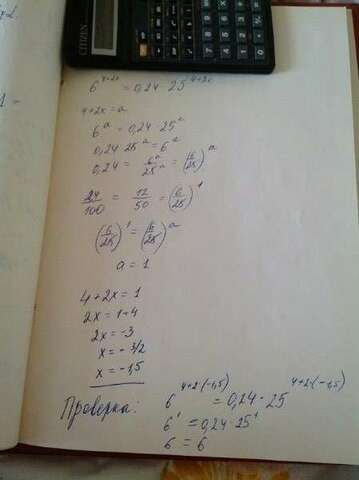 CITIZEN
6^{4+2x} = 0,24 · 25^{4+2x}
4+2x = a
6^a = 0,24 · 25^a
0,24 · 25^a = 6^a
0,24 = 6^a/25^a = (6/25)^a
24/100 = 12/50 = (6/25)^1
(6/25)^1 = (6/25)^a
a = 1
4+2x = 1
2x = 1-4
2x = -3
x = - 3/2
x = -1,5
Проверка:
6^{4+2·(-1,5)} = 0,24 · 25^{4+2·(-1,5)}
6^1 = 0,24 · 25^1
6 = 6